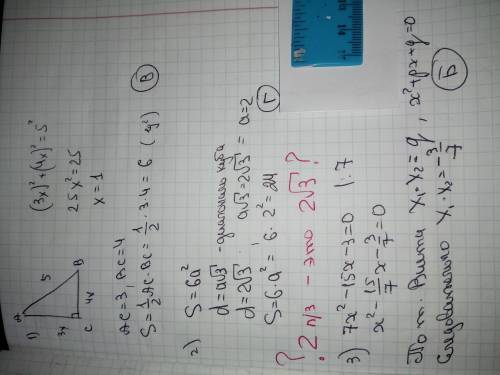 1) A 5 B C 3x 4x
(3x)²+(4x)²=5²
25x²=25
x=1
AC=3, BC=4
S=½AC·BC=½·3·4=6 (ед²) В
2) S=6a²
d=a√3 - диагональ куба
d=2√3 a√3=2√3 a=2
S=6·a²=6·2²=24 Г
? 2 п/3 - это 2√3 ?
3) 7x²-15x-3=0 |:7
x²-15/7x-3/7=0
По т. Виета x₁·x₂=q, x²+px+q=0
Следовательно x₁·x₂=-3/7 Б
14